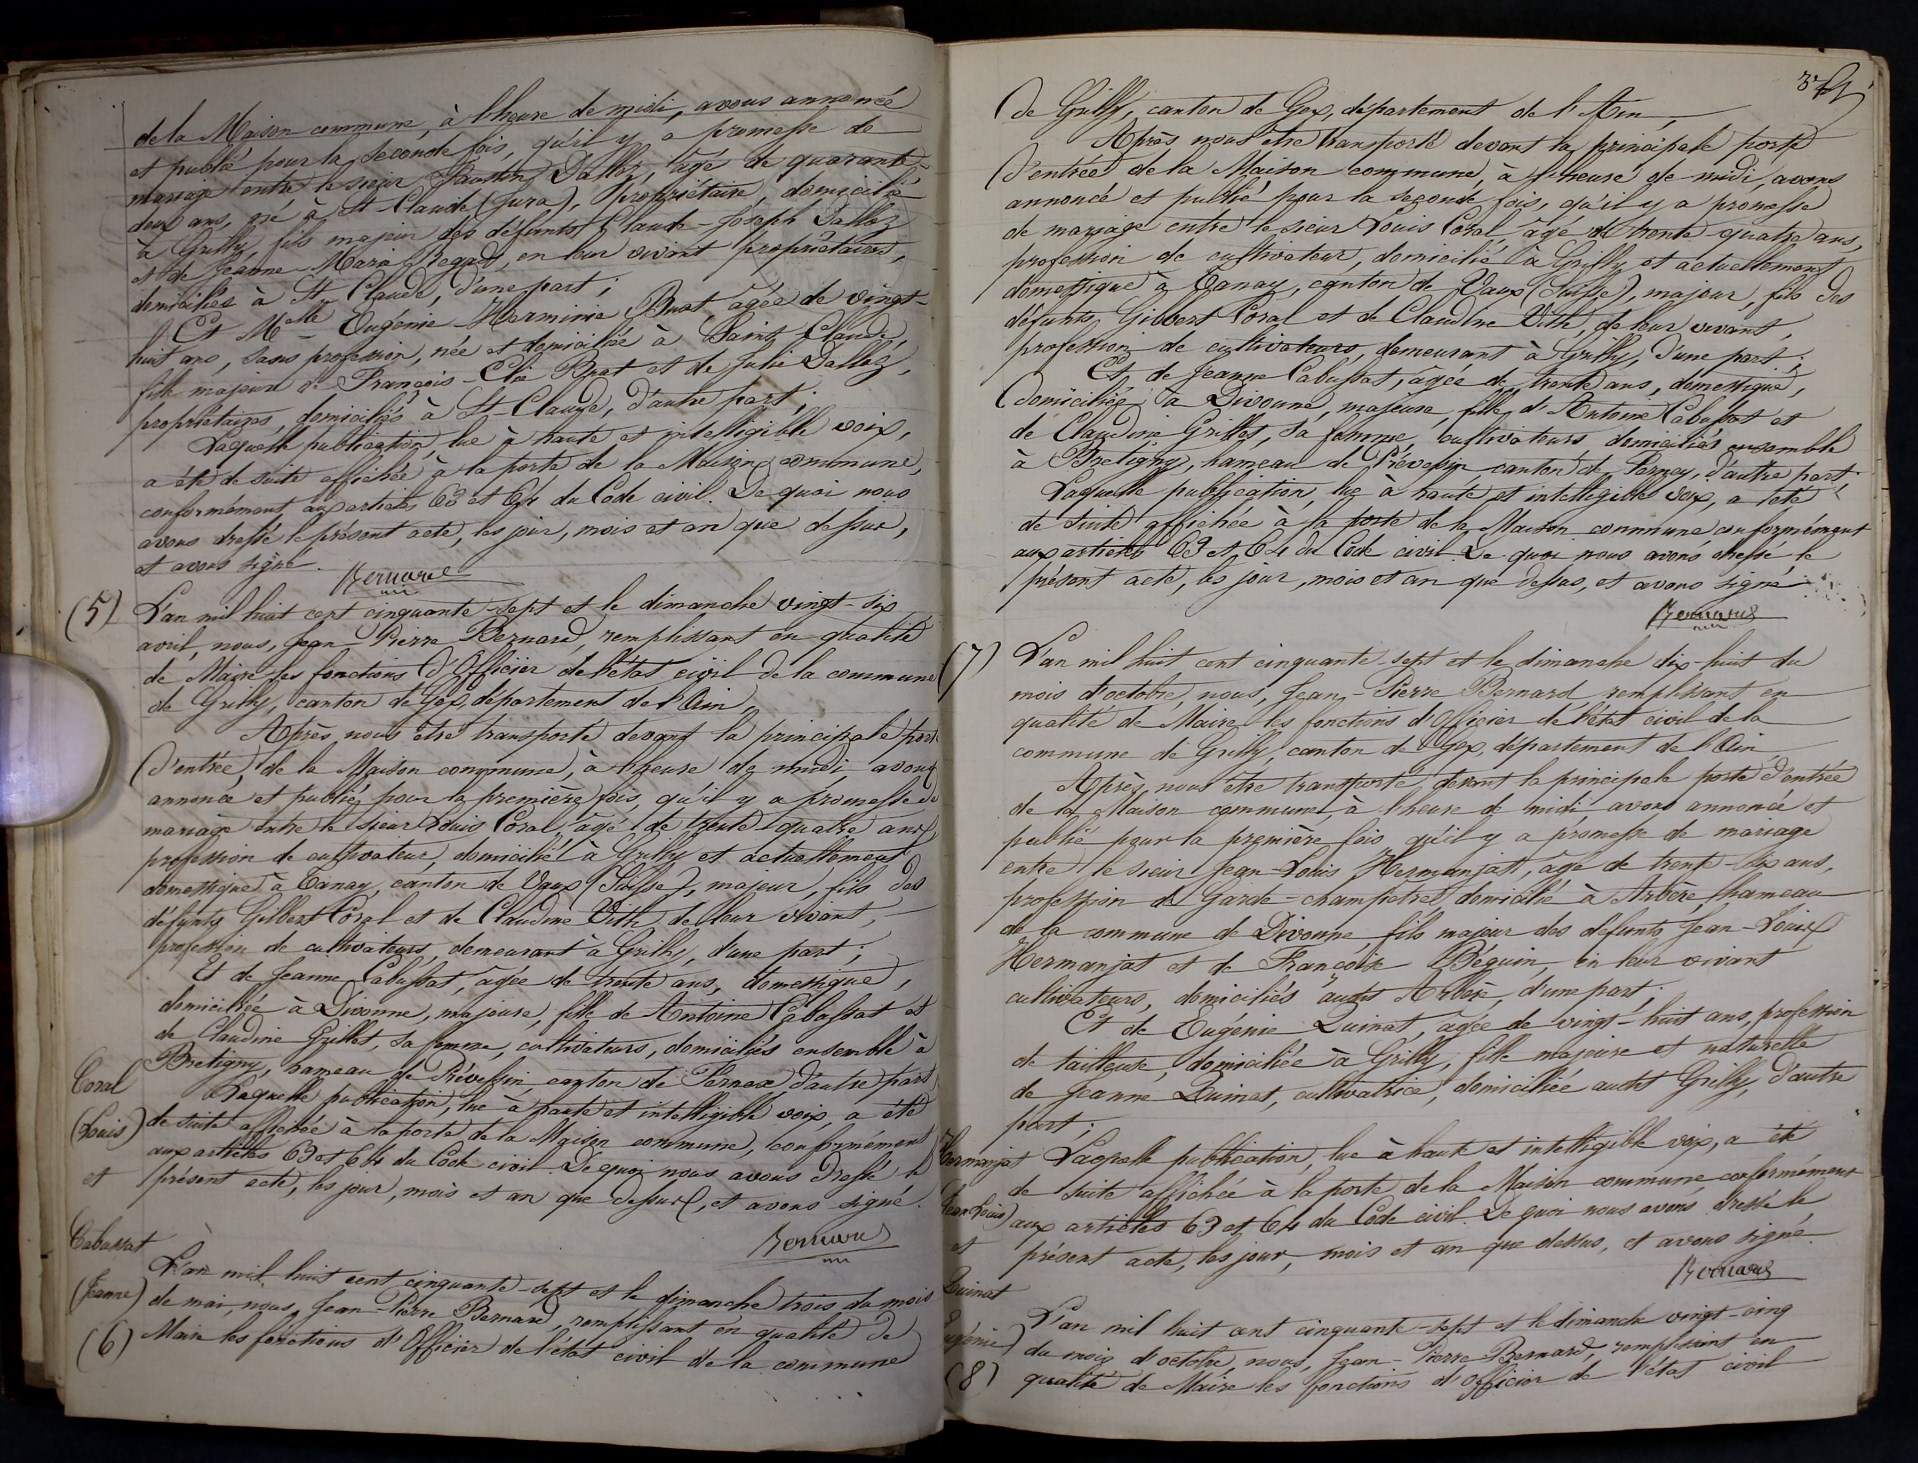 de la Maison commune, à l'heure de midi, avons annoncé
et publié pour la seconde fois, qu'il y a promesse de
mariage entre le sieur Dalloz, âgé de quarante-
deux ans, né à St Claude (Jura), propriétaire, domicilié
à Grilly, fils majeur des défunts Claude-Joseph Dalloz
et de Jeanne-Mara Regad, en leur vivant propriétaires,
domiciliés à St Claude, d'une part;
Et Melle Eugénie-Herminie Buat, âgée de vingt-
huit ans, sans profession, née et domiciliée à Saint Claude,
fille majeure de François-Elie Buat et de Julie Dalloz,
propriétaires, domiciliés à St-Claude, d'autre part;
Laquelle publication, lue à haute et intelligible voix,
a été de suite affichée à la porte de la Maison commune,
conformément aux articles 63 et 64 du Code civil. De quoi nous
avons dressé le présent acte, les jour, mois et an que dessus,
et avons signé.
Bernard
(5) L'an mil huit cent cinquante-sept et le dimanche vingt-six
avril, nous, Jean-Pierre Bernard, remplissant en qualité
de Maire les fonctions d'Officier de l'état civil de la commune
de Grilly, canton de Gex, département de l'Ain,
Après nous être transporté devant la principale porte
d'entrée, de la Maison commune, à l'heure de midi, avons
annoncé et publié pour la première fois, qu'il y a promesse de
mariage entre le sieur Louis Coral, âgé de trente quatre ans,
profession de cultivateur, domicilié à Grilly et actuellement
domestique à Tanay, canton de Vaux (Suisse), majeur, fils des
défunts Gilbert Coral et de Claudine Vith, de leur vivant,
profession de cultivateurs, demeurant à Grilly, d'une part;
Et de Jeanne Cabassat, âgée de trente ans, domestique,
domiciliée à Divonne, majeure, fille de Antoine Cabassat et
de Claudine Grillet, sa femme, cultivateurs, domiciliés ensemble à
Bretigny, hameau de Prévessin canton de Fernex, d'autre part,
Laquelle publication, lue à haute et intelligible voix, a été
de suite affichée à la porte de la Maison commune, conformément
aux articles 63 et 64 du Code civil. De quoi nous avons dressé le
présent acte, les jour, mois et an que dessus, et avons signé.
Bernard
Coral
(Louis)
et
Cabassat
(Jeanne)
(6)
L'an mil huit cent cinquante-sept et le dimanche trois du mois
de mai, nous, Jean-Pierre Bernard, remplissant en qualité de
Maire les fonctions d'Officier de l'état civil de la commune
de Grilly, canton de Gex, département de l'Ain,
Après nous être transporté devant la principale porte
d'entrée de la Maison commune, à l'heure de midi, avons
annoncé et publié pour la seconde fois, qu'il y a promesse
de mariage entre le sieur Louis Coral âgé de trente quatre ans,
profession de cultivateur, domicilié à Grilly et actuellement
domestique à Tanay, canton de Vaux (Suisse), majeur, fils des
défunts, Gilbert Coral et de Claudine Vith, de leur vivant,
profession de cultivateurs, demeurant à Grilly, d'une part;
Et, de Jeanne Cabassat, âgée de trente ans, domestique,
domiciliée à Divonne, majeure, fille d'Antoine Cabassat et
de Claudine Grillet, sa femme, cultivateurs domiciliés ensemble
à Bretigny, hameau de Prévessin canton de Ferney, d'autre part;
Laquelle publication, lue à haute et intelligible voix, a été
de suite affichée à la porte de la Maison commune conformément
aux articles 63 et 64 du Code civil. De quoi nous avons dressé le
présent acte, les jour, mois et an que dessus, et avons signé.
Bernard
(7) L'an mil huit cent cinquante-sept et le dimanche dix-huit du
mois d'octobre, nous, Jean-Pierre Bernard, remplissant en
qualité de Maire les fonctions d'Officier de l'état civil de la
commune de Grilly, canton de Gex, département de l'Ain
Après nous être transporté devant la principale porte d'entrée
de la Maison commune, à l'heure de midi, avons annoncé et
publié pour la première fois qu'il y a promesse de mariage
entre le sieur Jean-Louis Hermanjat, âgé de trente-six ans,
profession de Garde-champêtre, domicilié à Arbère, hameau
de la commune de Divonne, fils majeur des défunts Jean-Louis
Hermanjat et de Françoise Béguin, en leur vivant
cultivateurs, domiciliés audit Arbère, d'une part;
Et de Eugénie Duinat, âgée de vingt-huit ans, profession
de tailleuse, domiciliée à Grilly, fille majeure et naturelle
de Jeanne Duinat, cultivatrice, domiciliée audit Grilly, d'autre
part;
Laquelle publication, lue à haute et intelligible voix, a été
de suite affichée à la porte de la Maison commune conformément
aux articles 63 et 64 du Code civil. De quoi nous avons dressé le
présent acte, les jour, mois et an que dessus, et avons signé.
Bernard
Hermanjat
(Jean Louis)
et
Duinat
Eugénie)
(8)
L'an mil huit cent cinquante-sept et le dimanche vingt-cinq
du mois d'octobre, nous, Jean-Pierre Bernard, remplissant en
qualité de Maire les fonctions d'Officier de l'état civil